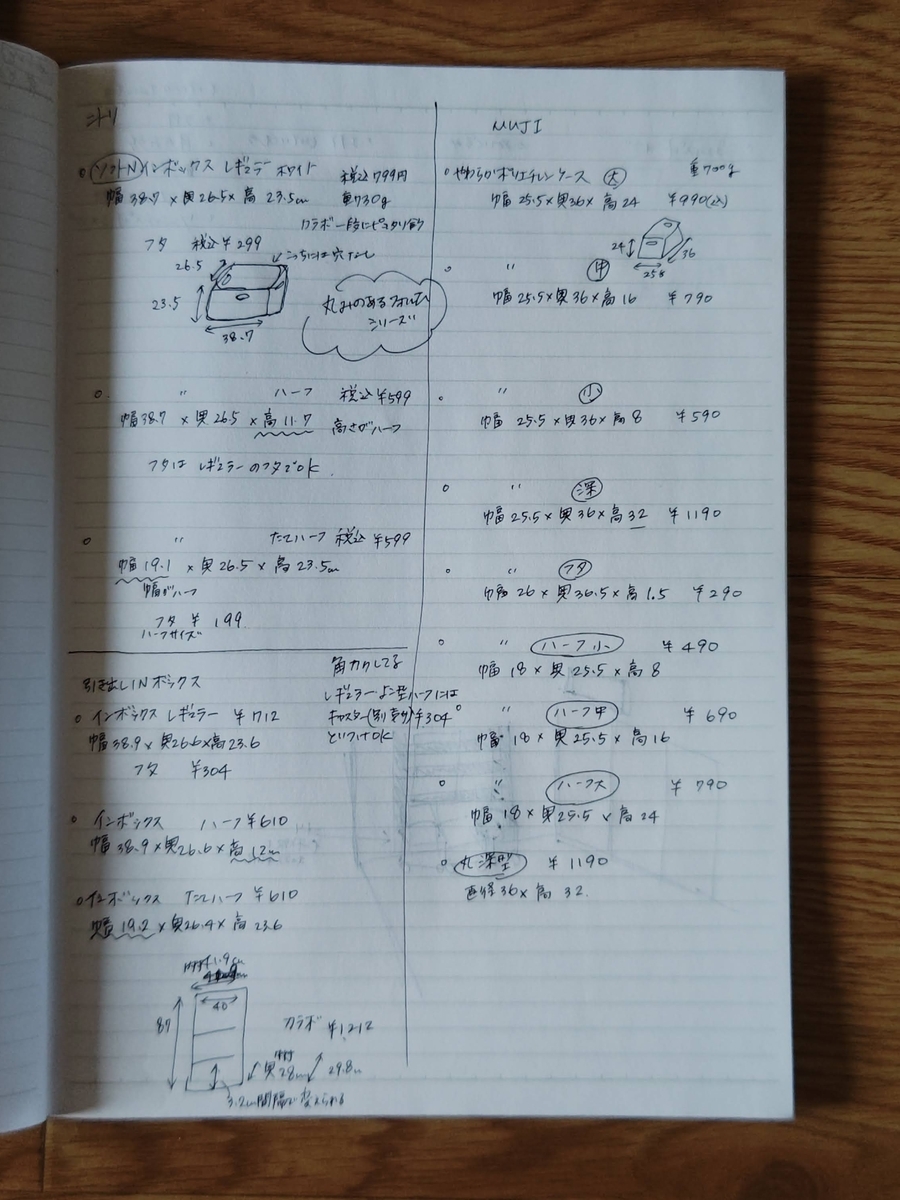 ニトリ
○ソフトNインボックス レギュラー ホワイト 税込799円
幅38.7×奥26.5×高23.5cm 重730g
カラボ一段にピッタリ
フタ 税込¥299
こっちには穴なし
26.5
23.5
38.7
丸みのあるフォルム
シリーズ
○ 〃 ハーフ 税込¥599
幅38.7×奥26.5×高11.7 高さがハーフ
フタは レギュラーのフタでOK
○ 〃 たてハーフ 税込¥599
幅19.1×奥26.5×高23.5cm
幅がハーフ
フタ ¥199
ハーフサイズ
引き出しINボックス
角カクしてる
レギュラー・よこ型ハーフには
キャスター(別売り)¥304
といつけOK
○インボックス レギュラー ¥712
幅38.9×奥26.6×高23.6
フタ ¥304
○インボックス ハーフ ¥610
幅38.9×奥26.6×高12cm
○インボックス たてハーフ ¥610
幅19.2×奥26.4×高23.6
41.9cm
40
87
カラボ ¥1,212
奥28cm 29.8cm
3.2cm間隔で変えられる
MUJI
重700g
○やわらかポリエチレンケース 大
幅25.5×奥36×高24 ¥990(込)
24
25.5
36
○ 〃 中
幅25.5×奥36×高16 ¥790
○ 〃 小
幅25.5×奥36×高8 ¥590
○ 〃 深
幅25.5×奥36×高32 ¥1190
○ 〃 フタ
幅26×奥36.5×高1.5 ¥290
○ 〃 ハーフ小 ¥490
幅18×奥25.5×高8
○ 〃 ハーフ中 ¥690
幅18×奥25.5×高16
○ 〃 ハーフ大 ¥790
幅18×奥25.5×高24
○丸深型 ¥1190
直径36×高32